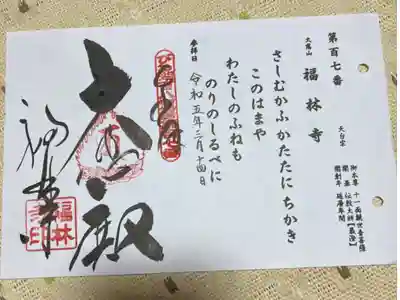 第百七番
大慈山
福林寺
天台宗
御本尊 十一面観世音菩薩
開基 伝教大師【最澄】
開創年 延暦年間
さしむかふ かたたにちかき
このはまや
わたしのふねも
のりのしるべに
参拝日 令和五年三月十四日
大悲殿
福林寺
福林